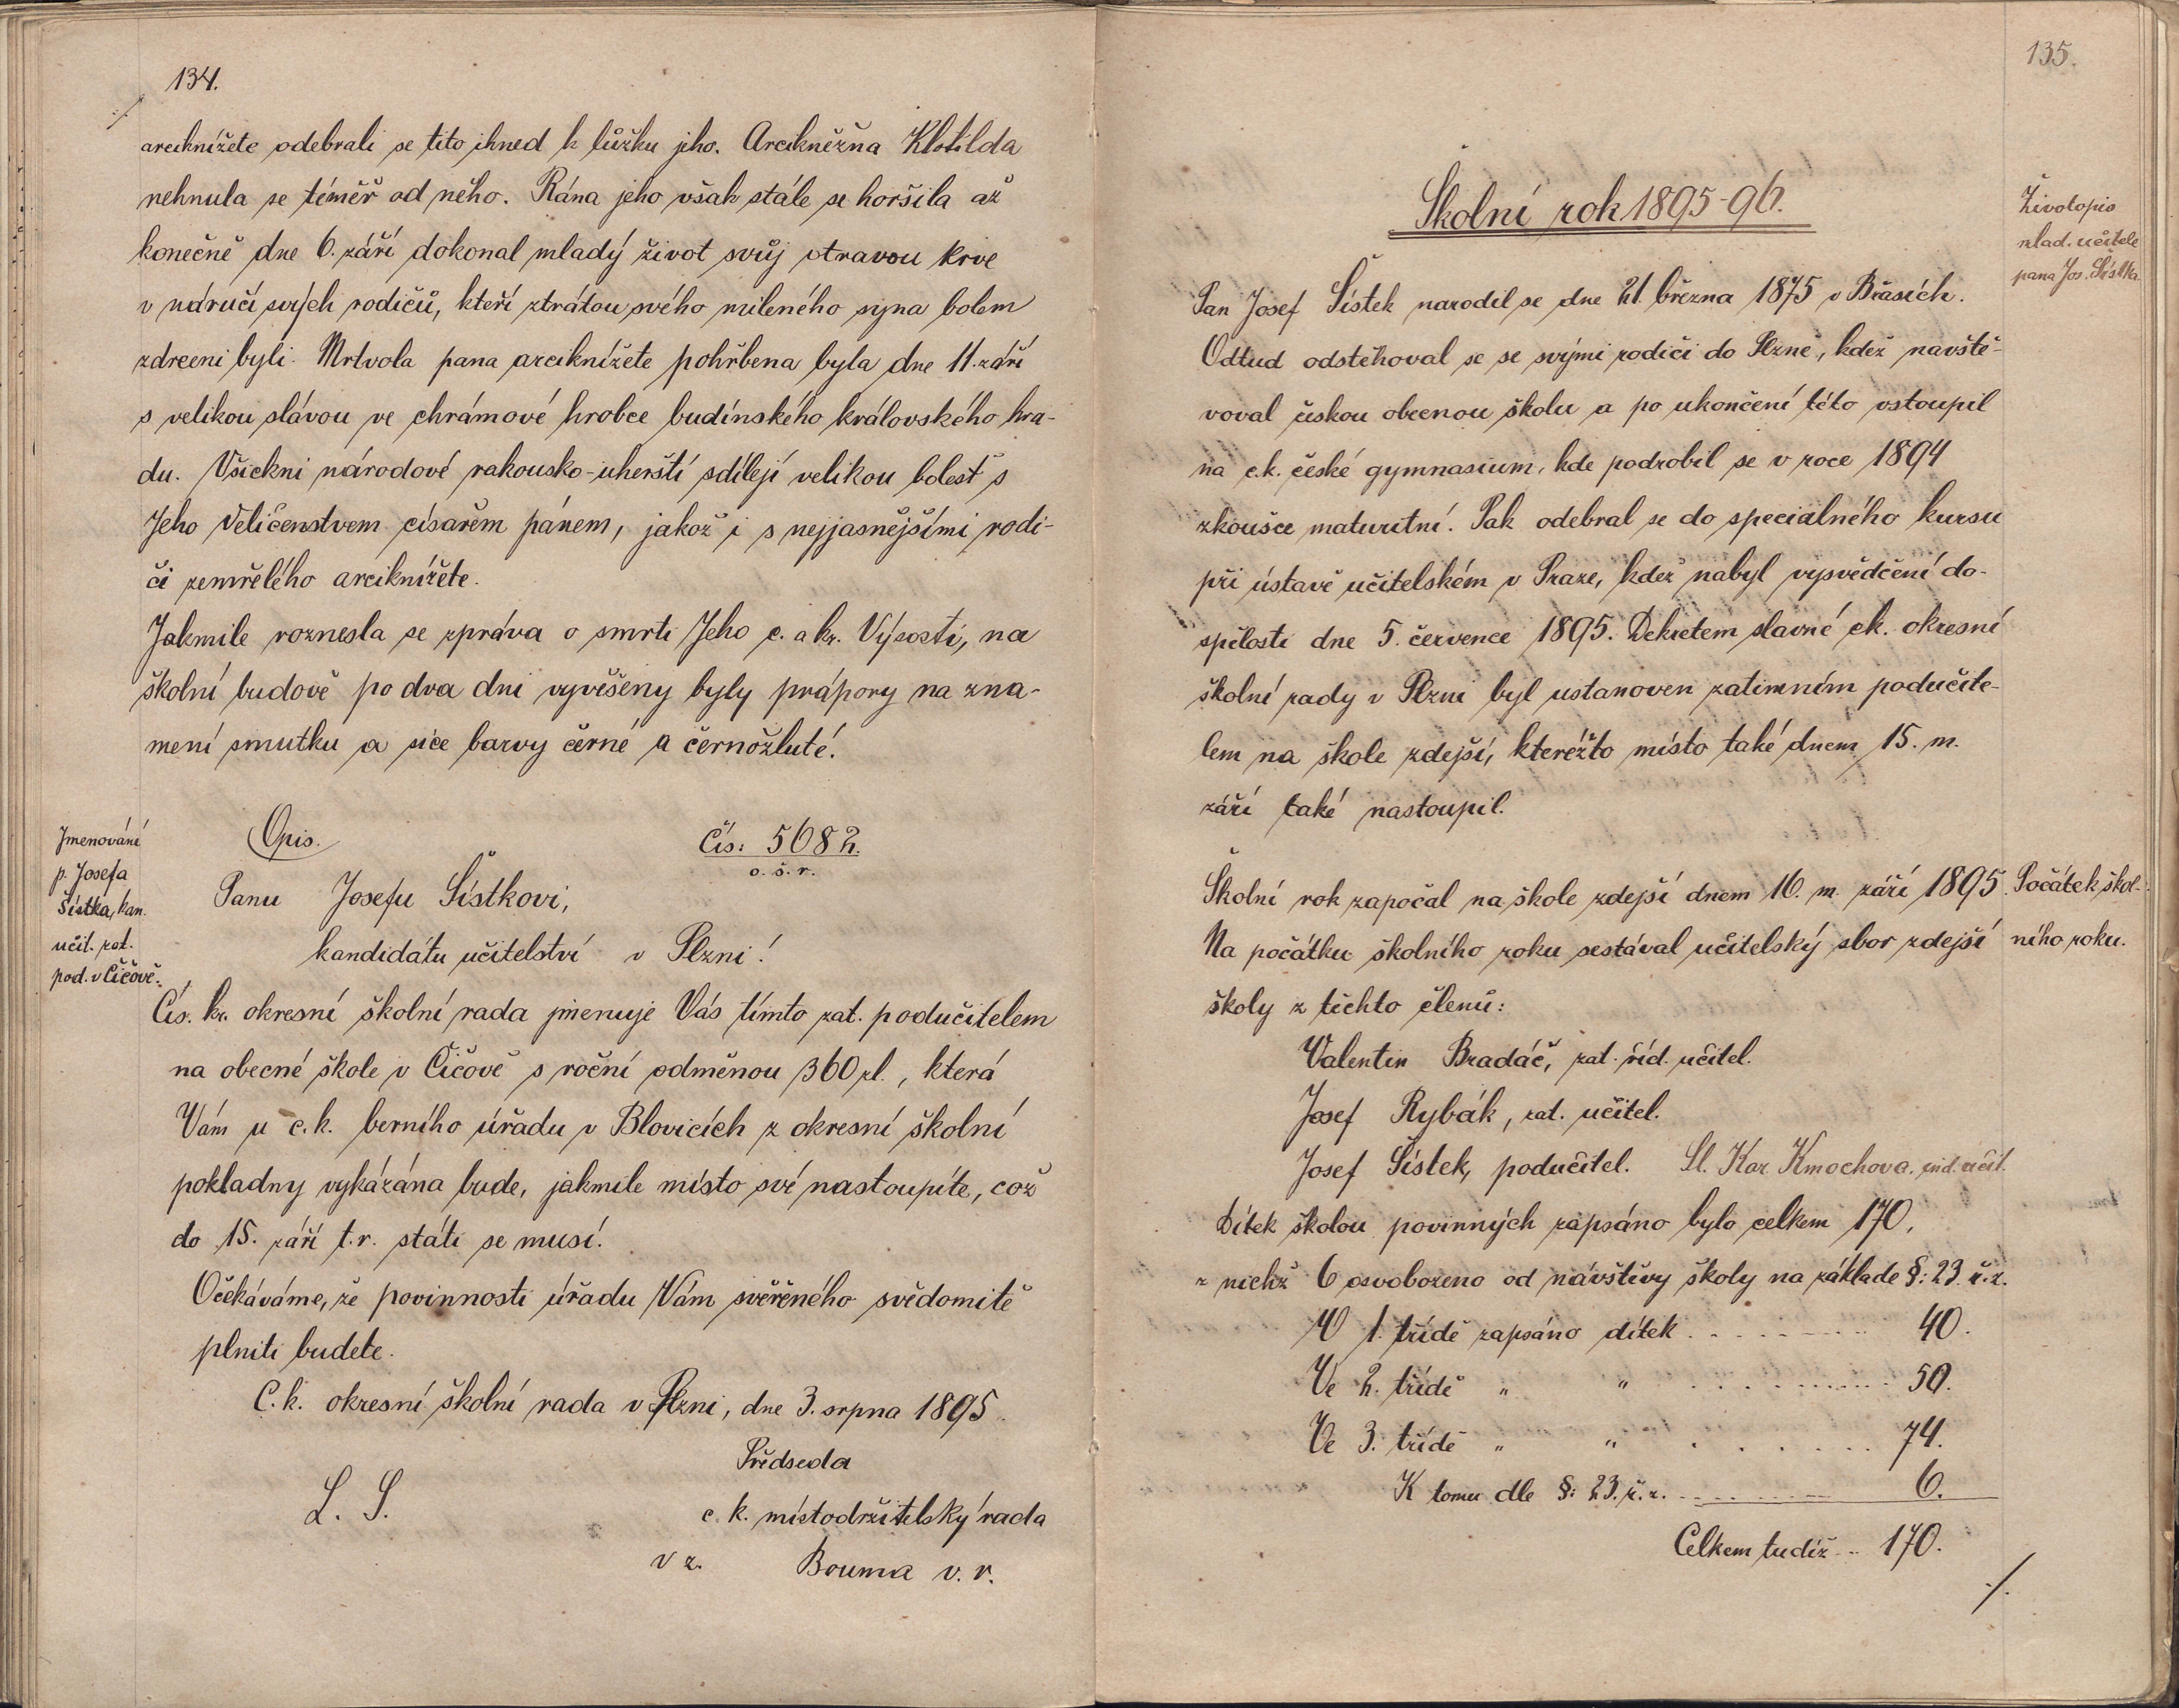 134.
./.
arciknížete odebrali se tito ihned k lůžku jeho. Arcikněžna Klotilda
nehnula se téměř od něho. Rána jeho však stále se horšila až
konečně dne 6. září dokonal mladý život svůj otravou krve
v náručí svých rodičů, kteří ztrátou svého mileného syna bolem
zdrceni byli. Mrtvola pana arciknížete pohřbena byla dne 11. září
s velikou slávou ve chrámové hrobce budínského královského hra-
du. Všickni národové rakousko-uherští sdílejí velikou bolest s
Jeho Veličenstvem císařem pánem, jakož i s nejjasnějšími rodi-
či zemřelého arciknížete.
Jakmile roznesla se zpráva o smrti Jeho c. a kr. Výsosti, na
školní budově po dva dni vyvěšeny byly prápory na zna-
mení smutku a sice barvy černé a černožluté.
Jmenování
p. Josefa
Šístka, kan.
učit. zat.
pod. v Čičově.
Opis.
Čís: 5682.
o. š. r.
Panu Josefu Šístkovi,
kandidátu učitelství v Plzni!
Cís. kr. okresní školní rada jmenuje Vás tímto zat. podučitelem
na obecné škole v Čičově s roční odměnou 360 zl., která
Vám u c. k. berního úřadu v Blovicích z okresní školní
pokladny vykázána bude, jakmile místo své nastoupíte, což
do 15. září t. r. státi se musí.
Očekáváme, že povinnosti úřadu Vám svěřeného svědomitě
plniti budete.
C. k. okresní školní rada v Plzni, dne 3. srpna 1895.
Předseda
L. S.
c. k. místodržitelský rada
v z. Bouma v. r.
135.
Školní rok 1895-96.
Životopis
mlad. učitele
pana Jos. Šístka
Pan Josef Šístek narodil se dne 21. března 1875 v Břasích.
Odtud odstěhoval se se svými rodiči do Plzně, kdež navště-
voval českou obecnou školu a po ukončení této vstoupil
na c. k. české gymnasium, kde podrobil se v roce 1894
zkoušce maturitní. Pak odebral se do speciálného kursu
při ústavě učitelském v Praze, kdež nabyl vysvědčení do-
spělosti dne 5. července 1895. Dekretem slavné ck. okresní
školní rady v Plzni byl ustanoven zatimním podučite-
lem na škole zdejší, kteréžto místo také dnem 15. m.
září také nastoupil.
Školní rok započal na škole zdejší dnem 16. m. září 1895.
Počátek škol-
ního roku.
Na počátku školního roku sestával učitelský sbor zdejší
školy z těchto členů:
Valentin Bradáč, zat. říd. učitel.
Josef Rybák, zat. učitel.
Josef Šístek, podučitel. Sl. Kar. Kmochova. ind. učit.
Dítek školou povinných zapsáno bylo celkem 170,
z nichž 6 osvobozeno od návštěvy školy na základě §: 23. ř. z.
V 1. třídě zapsáno dítek . . . . . . . . 40.
Ve 2. třídě " " . . . . . . . . 50.
Ve 3. třídě " " . . . . . . . . 74.
K tomu dle §: 23. ř. z. . . . . . . . . 6.
Celkem tudíž . . 170.
./.